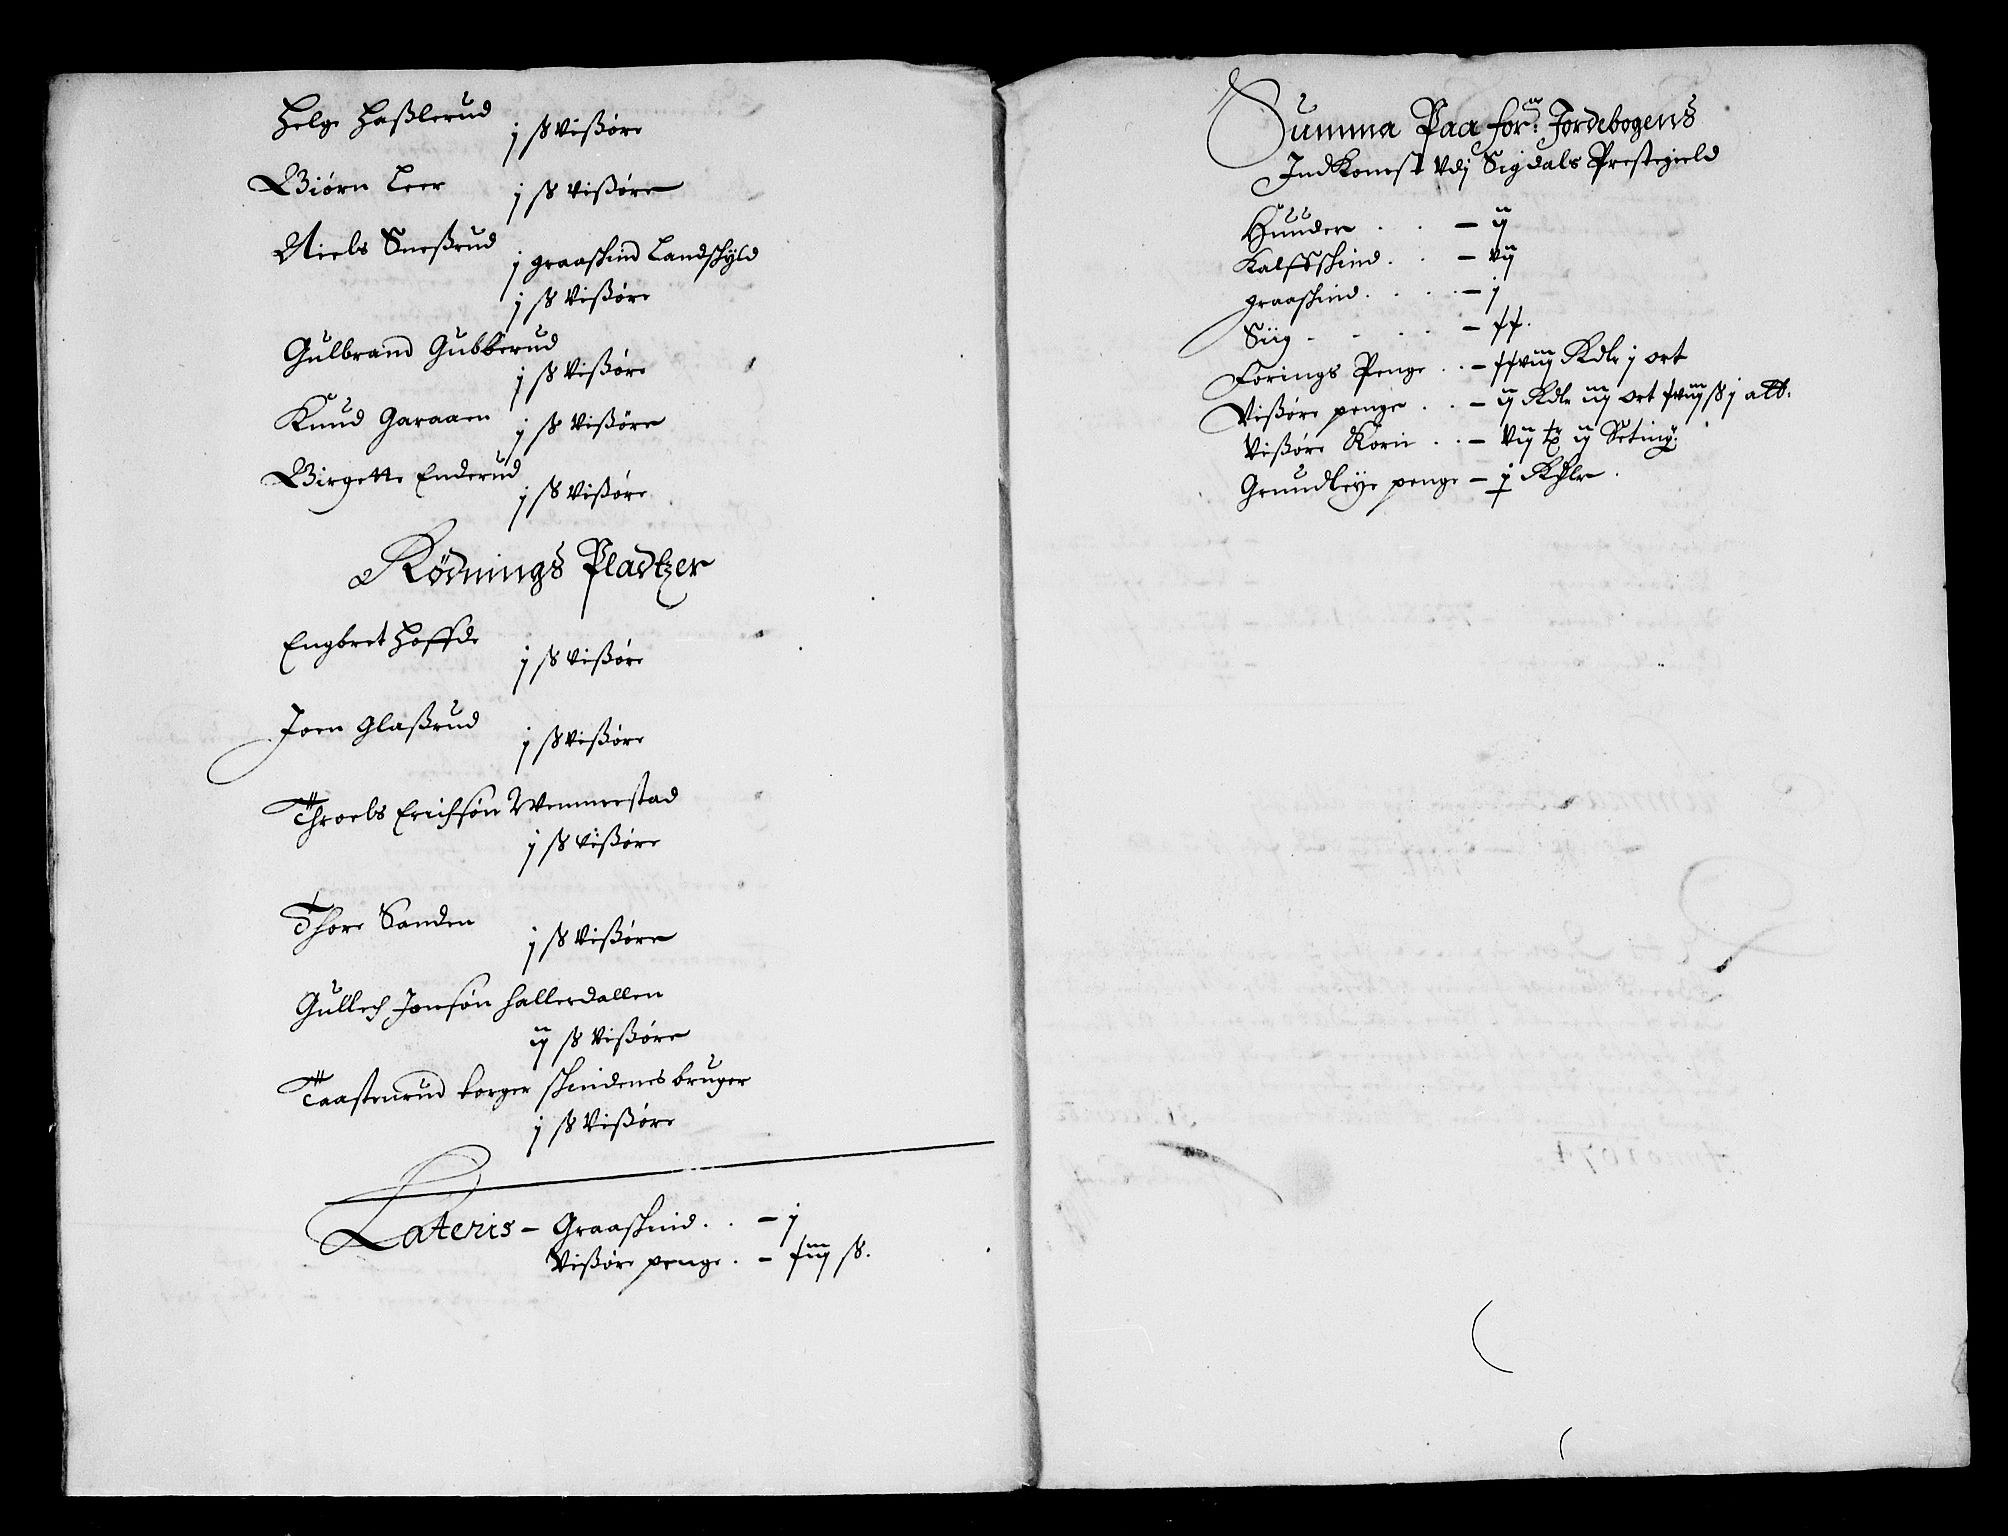 Helge Haßlerud
j ß Vißøre
Biørn Leer
j ß Vißøre
Niels Sneßrud
j graaskind Landskyld
j ß Vißøre
Gulbrand Gubberud
j ß Vißøre
Knud Garaaen
j ß Vißøre
Birgette Enderud
j ß Vißøre
Rødnings Pladtzer
Engbret Hoffde
j ß Vißøre
Joen Glaßrud
j ß Vißøre
Throels Erichsøn Wemmestad
j ß Vißøre
Thore Sanden
j ß Vißøre
Gullech Jonsøn Hallerdallen
ij ß Vißøre
Taastenrud borger skindenes bruger
j ß Vißøre
Lateris - Graaskind . . - j
Vißøre penge . - xiiij ß.
Summa Paa forn: Jordebogens
Indkomst Vdj Sigdals Prestegield
Huuder . . - ij
Kalffskind . . - vij
graaskind . . . - j
Siig - . . . - xx.
Forings Penge . . - xxviij Rdlr j ort
Vißøre penge . . - ij Rdlr iij ort xviij ß j alb:
Vißøre Korn . . - vij tr ij Seting:
Grundleye penge - j Rdlr .